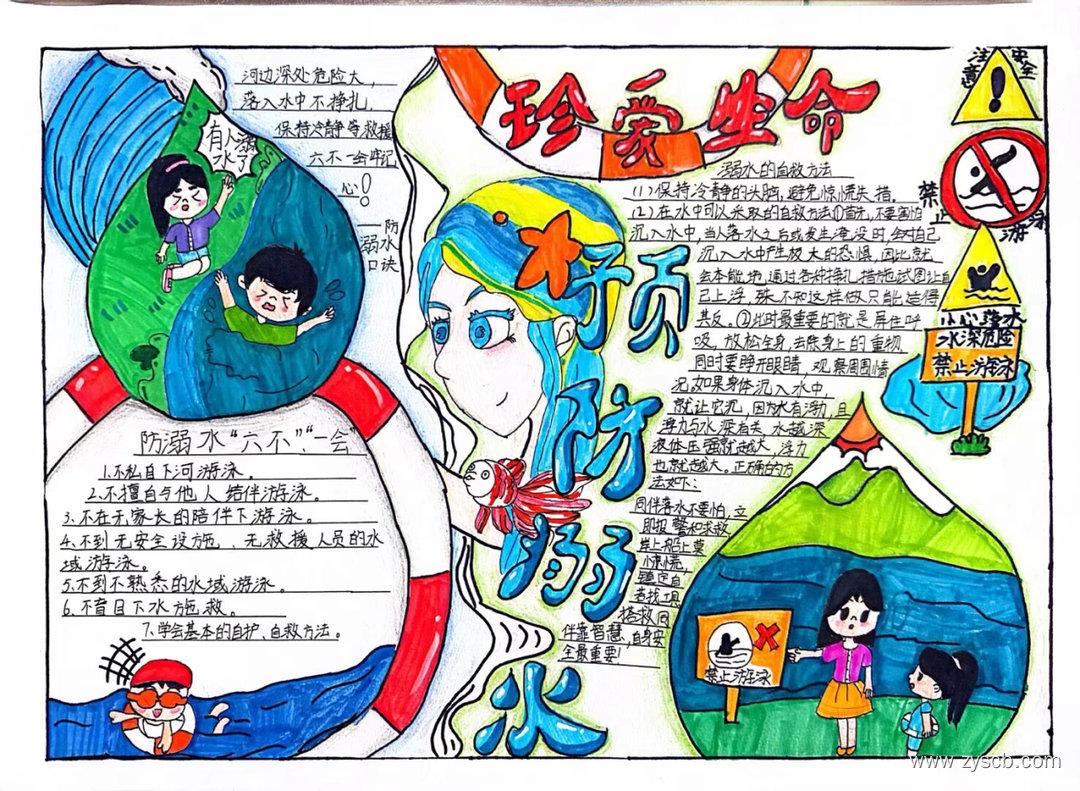 珍爱生命
预防溺水
河边深处危险大，
落入水中不挣扎，
保持冷静等救援
六不一会牢记
心！
——防
溺水
口诀
有人溺
水了
防溺水“六不”“一会”
1.不私自下河游泳
2.不擅自与他人结伴游泳。
3.不在无家长的陪伴下游泳。
4.不到无安全设施、无救援人员的水
域游泳。
5.不到不熟悉的水域游泳
6.不盲目下水施救。
7.学会基本的自护、自救方法。
溺水的自救方法
(1)保持冷静的头脑,避免惊慌失措.
(2)在水中可以采取的自救方法①首先,不要害怕
沉入水中,当人落水之后或发生淹没时,会对自己
沉入水中产生极大的恐惧,因此就
会本能地通过各种挣扎措施试图让自
己上浮,殊不知这样做只能适得
其反。②此时最重要的就是屏住呼
吸,放松全身,去除身上的重物,
同时要睁开眼睛,观察周围情
况,如果身体沉入水中,
就让它沉,因为水有浮力,且
浮力与水深有关,水越深
液体压强就越大,浮力
也就越大。正确的方
法如下:
同伴落水不要怕,立
即报警和求救,
岸上船上莫
惊慌,
镇定自
若找工具
搭救同
伴靠智慧,自身安
全最重要!
注意
安全
禁止
游泳
小心落水
水深危险
禁止游泳
禁止游泳
www.zyscb.com